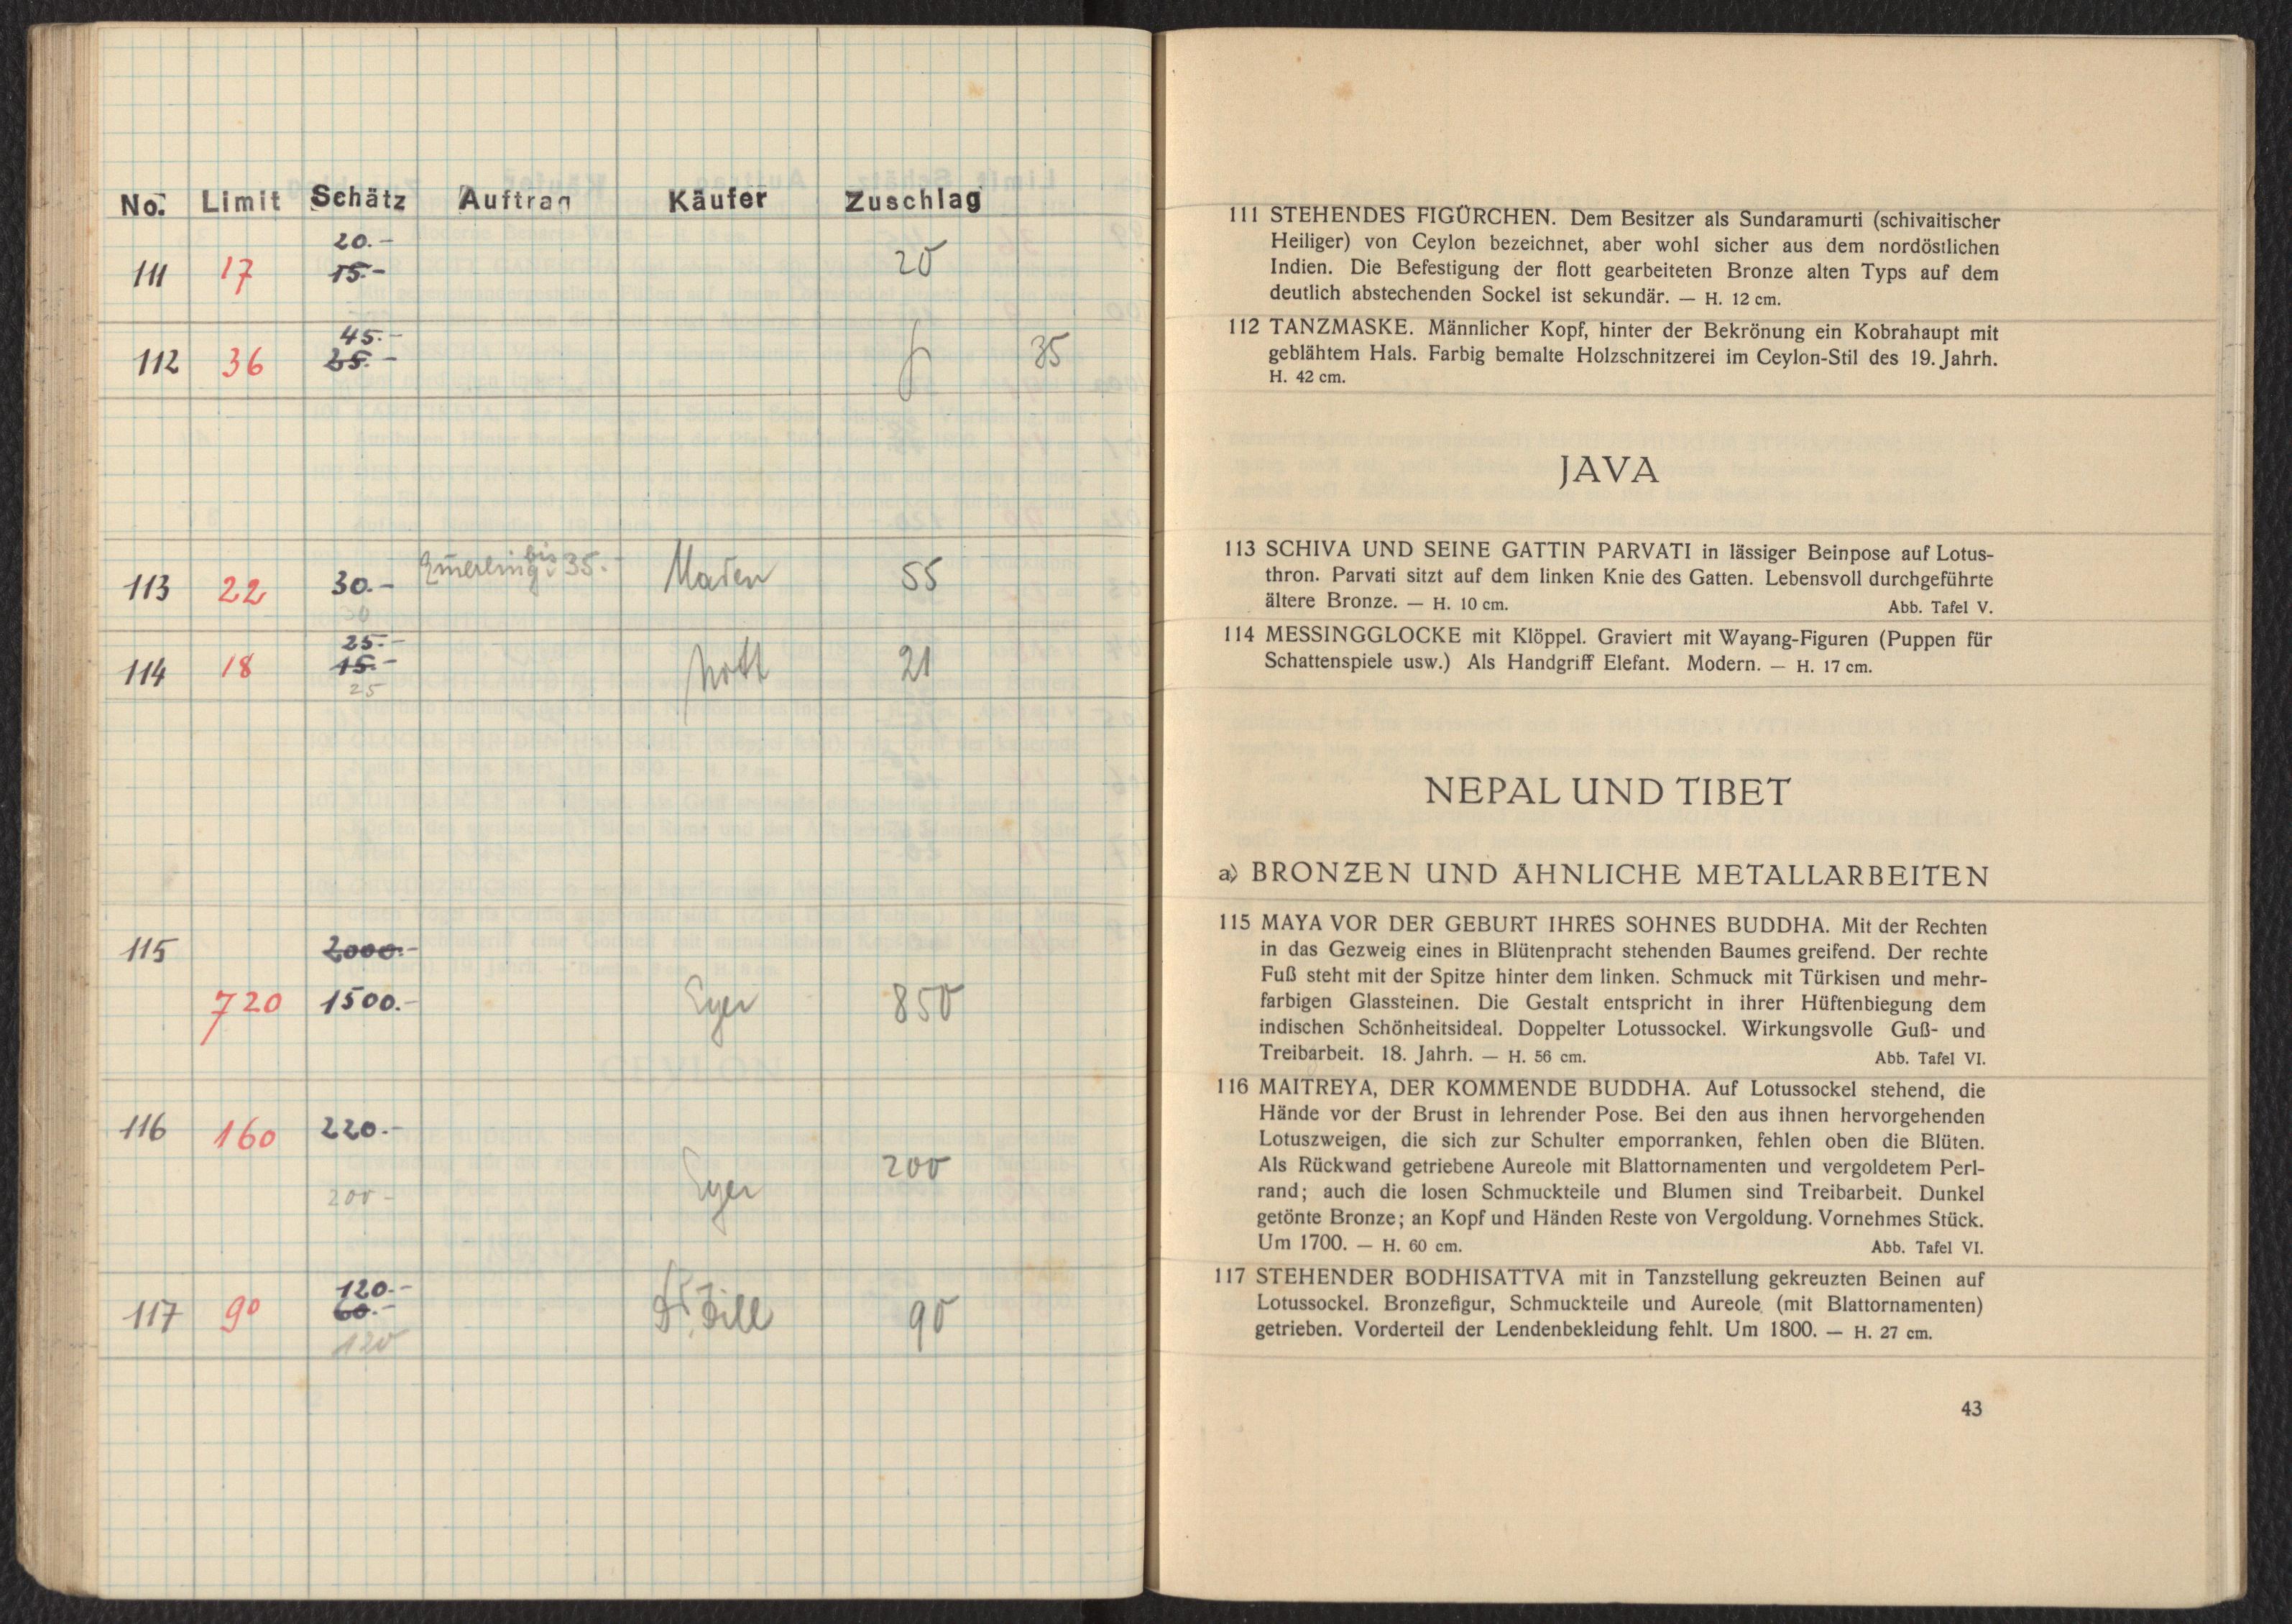 No. Limit Schätz Auftrag Käufer Zuschlag
20.-
111 17 15.- 20
45.-
112 36 25.- 35
bis
113 22 30.- 35.- 55
30
25.-
114 18 15.- 21
25
115 2000.-
720 1500.- Eyer 850
116 160 220.-
200 - Eyer 200
120.-
117 90 60.- Dr. Dill 90
120
111 STEHENDES FIGÜRCHEN. Dem Besitzer als Sundaramurti (schivaitischer
Heiliger) von Ceylon bezeichnet, aber wohl sicher aus dem nordöstlichen
Indien. Die Befestigung der flott gearbeiteten Bronze alten Typs auf dem
deutlich abstechenden Sockel ist sekundär. — H. 12 cm.
112 TANZMASKE. Männlicher Kopf, hinter der Bekrönung ein Kobrahaupt mit
geblähtem Hals. Farbig bemalte Holzschnitzerei im Ceylon-Stil des 19. Jahrh.
H. 42 cm.
JAVA
113 SCHIVA UND SEINE GATTIN PARVATI in lässiger Beinpose auf Lotus-
thron. Parvati sitzt auf dem linken Knie des Gatten. Lebensvoll durchgeführte
ältere Bronze. — H. 10 cm. Abb. Tafel V.
114 MESSINGGLOCKE mit Klöppel. Graviert mit Wayang-Figuren (Puppen für
Schattenspiele usw.) Als Handgriff Elefant. Modern. — H. 17 cm.
NEPAL UND TIBET
a) BRONZEN UND ÄHNLICHE METALLARBEITEN
115 MAYA VOR DER GEBURT IHRES SOHNES BUDDHA. Mit der Rechten
in das Gezweig eines in Blütenpracht stehenden Baumes greifend. Der rechte
Fuß steht mit der Spitze hinter dem linken. Schmuck mit Türkisen und mehr-
farbigen Glassteinen. Die Gestalt entspricht in ihrer Hüftenbiegung dem
indischen Schönheitsideal. Doppelter Lotussockel. Wirkungsvolle Guß- und
Treibarbeit. 18. Jahrh. — H. 56 cm. Abb. Tafel VI.
116 MAITREYA, DER KOMMENDE BUDDHA. Auf Lotussockel stehend, die
Hände vor der Brust in lehrender Pose. Bei den aus ihnen hervorgehenden
Lotuszweigen, die sich zur Schulter emporranken, fehlen oben die Blüten.
Als Rückwand getriebene Aureole mit Blattornamenten und vergoldetem Perl-
rand; auch die losen Schmuckteile und Blumen sind Treibarbeit. Dunkel
getönte Bronze; an Kopf und Händen Reste von Vergoldung. Vornehmes Stück.
Um 1700. — H. 60 cm. Abb. Tafel VI.
117 STEHENDER BODHISATTVA mit in Tanzstellung gekreuzten Beinen auf
Lotussockel. Bronzefigur, Schmuckteile und Aureole (mit Blattornamenten)
getrieben. Vorderteil der Lendenbekleidung fehlt. Um 1800. — H. 27 cm.
43